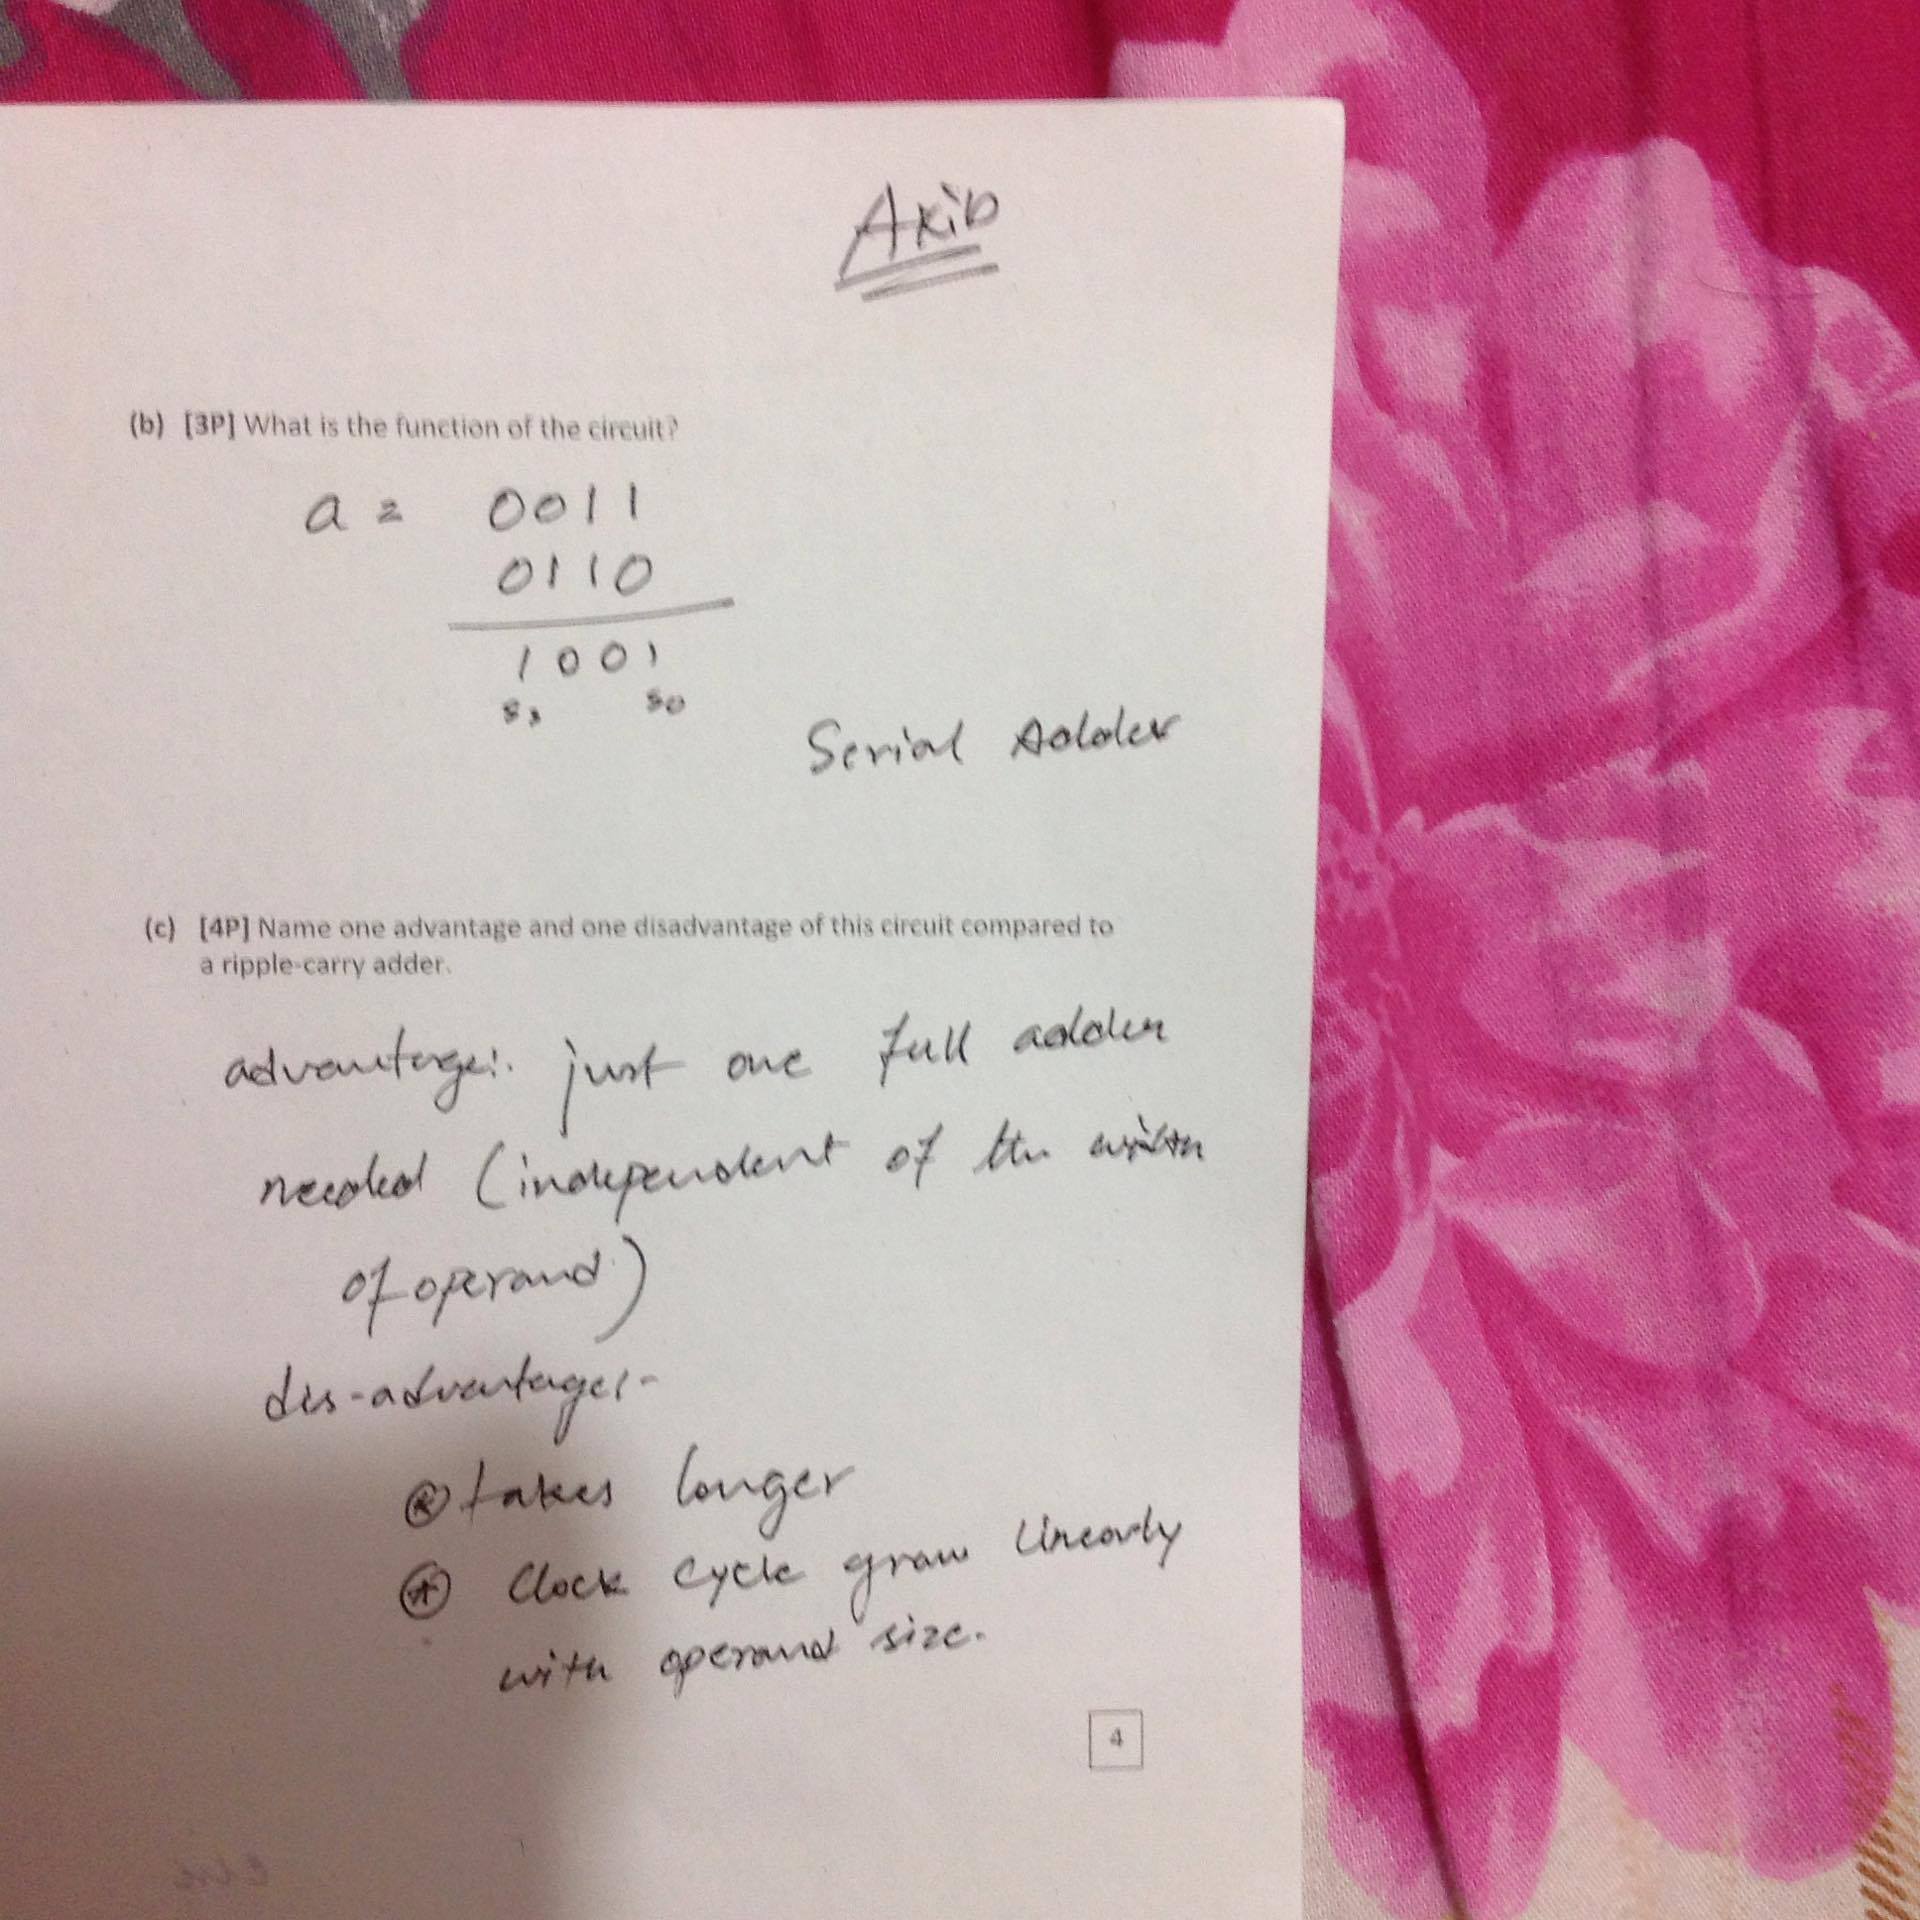 Akib
(b) [3P] What is the function of the circuit?
a = 0011
0110
1001
s3 s0
Serial Adder
(c) [4P] Name one advantage and one disadvantage of this circuit compared to
a ripple-carry adder.
advantage:. just one full adder
needed (independent of the
of operand)
dis-advantage:-
takes longer
Clock Cycle grow Linearly
with operand size.
4